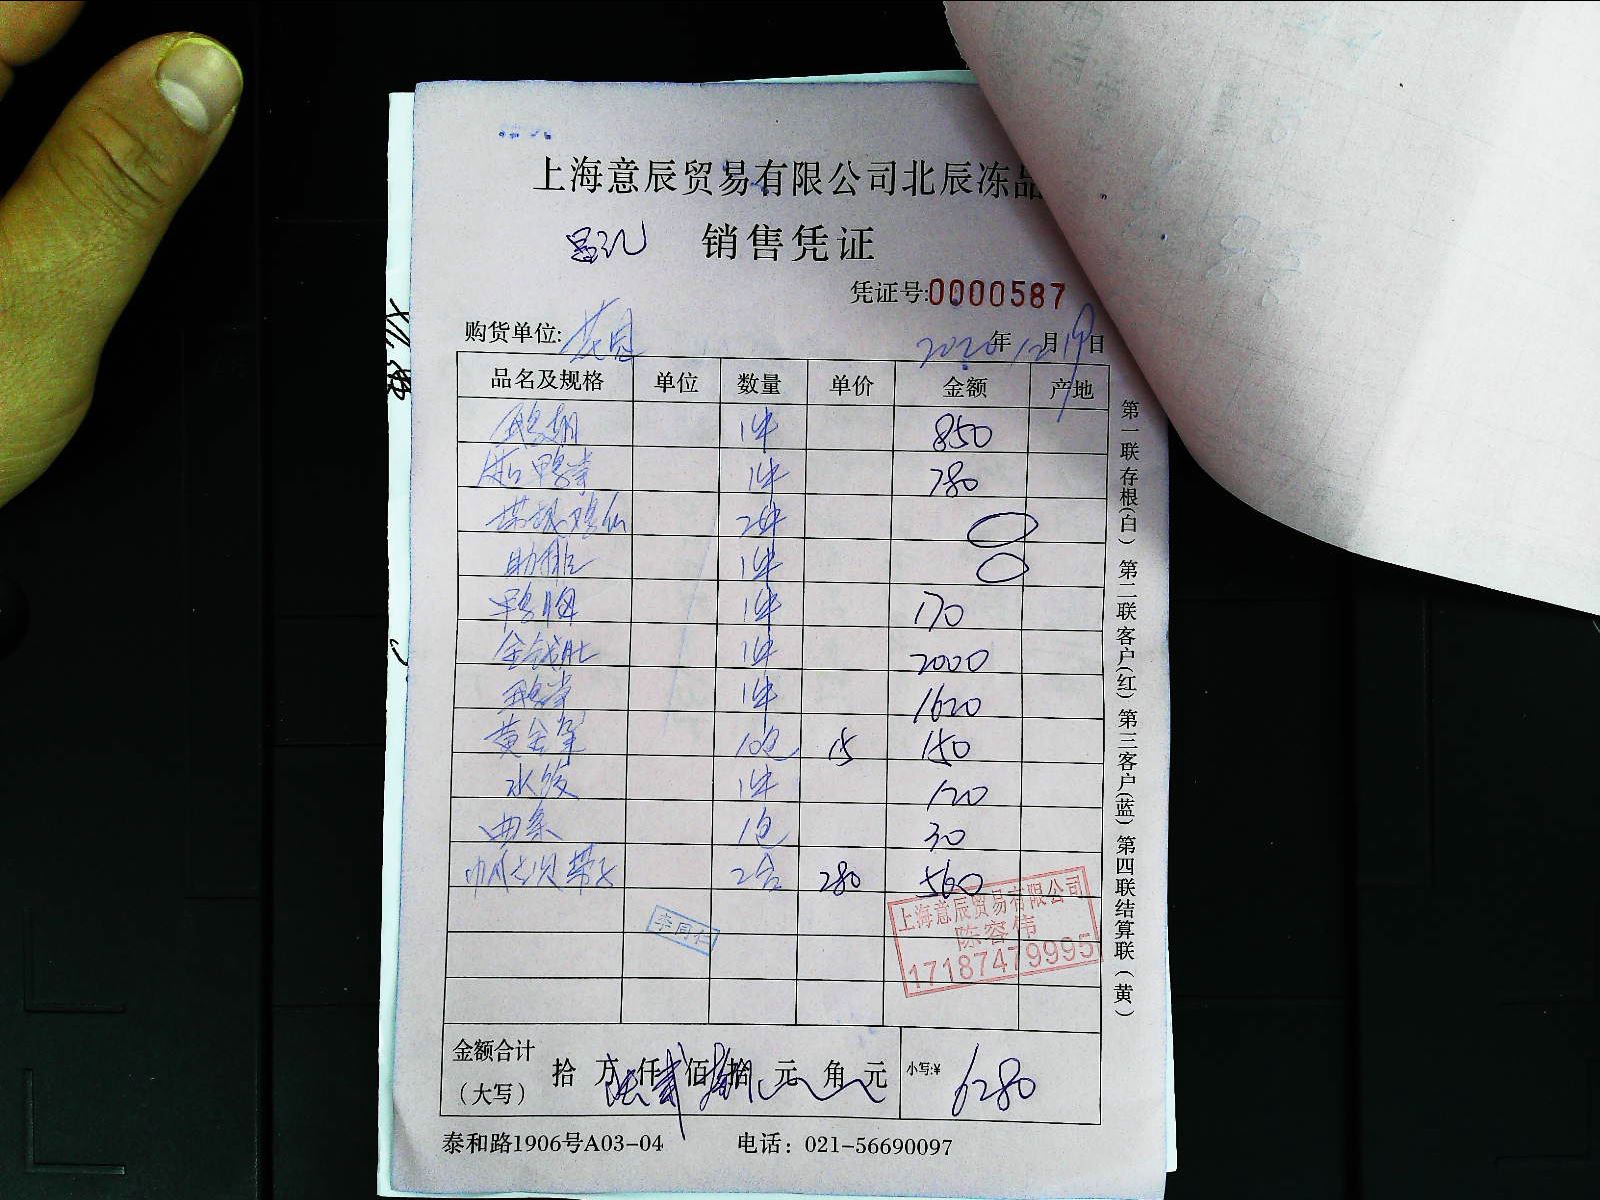 上海意辰贸易有限公司北辰冻品
销售凭证
凭证号:0000587
购货单位: 花园 2020年12月19日
品名及规格 单位 数量 单价 金额 产地
鹅翅 1件 850
鸭掌 1件 780
2件
助排 1件
鸭胸 1件 170
金钱肚 1件 2000
鹅掌 1件 1620
黄金 10包 15 150
水饺 1件 120
曲条 1包 30
带子 2合 280 560
李同仁
上海意辰贸易有限公司
陈容伟
17187479995
金额合计
（大写） 拾 万 仟 佰 拾 元 角 元 小写:¥ 6280
泰和路1906号A03-04 电话：021-56690097
第一联存根(白) 第二联客户(红) 第三客户(蓝) 第四联结算联(黄)